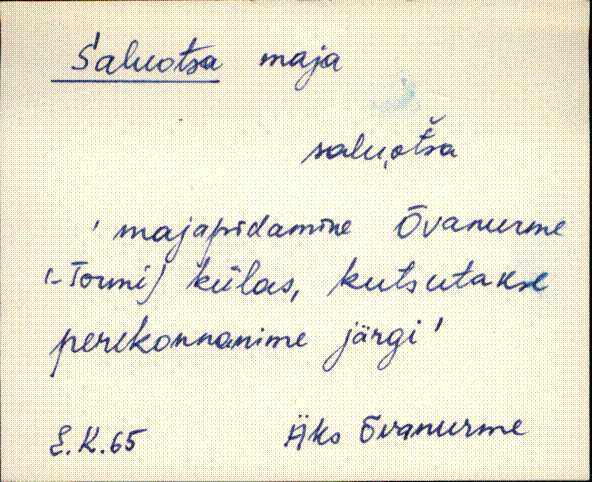 Saluotsa maja
saluotša
'majapidamine Õvanurme
(-Tormi) külas, kutsutakse
perekonnanime järgi'
E.K.65 Äks Õvanurme